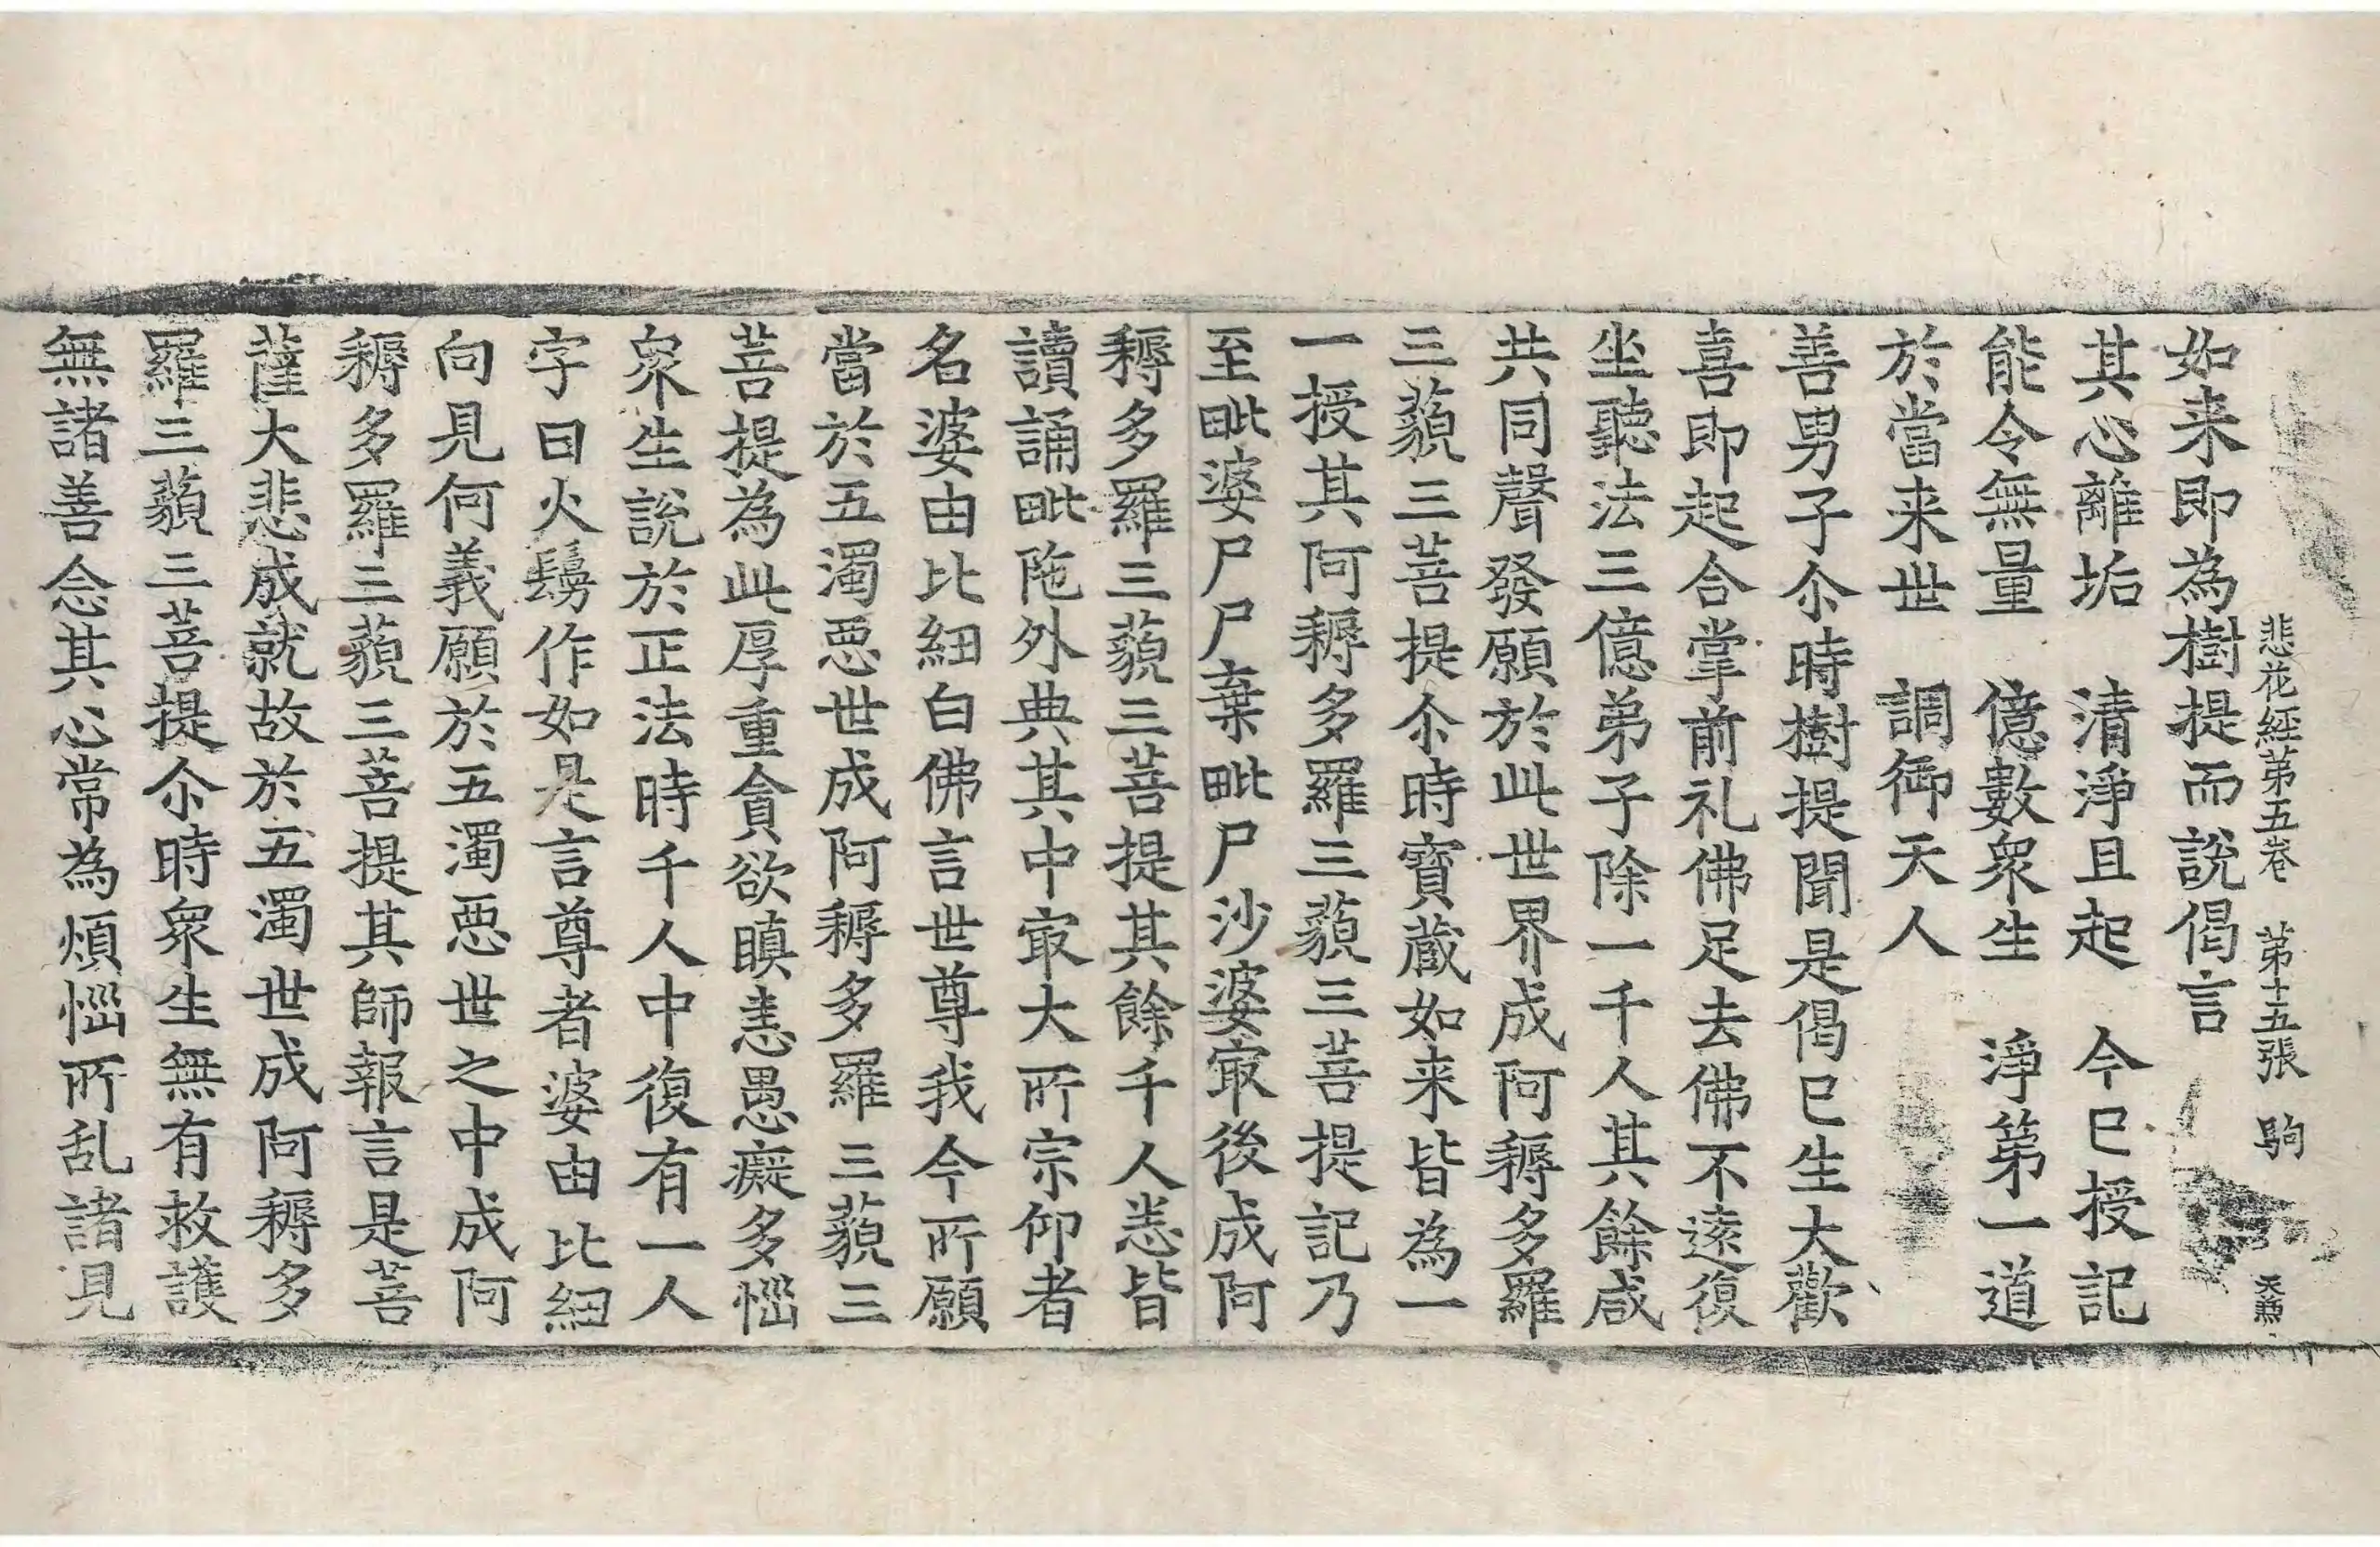 悲花經第五卷　第十五張　駒　天無
如来即為樹提而說偈言
其心離垢　清淨且起　今巳授記
能令無量　億數衆生　淨第一道
於當来世　調御天人
善男子尒時樹提聞是偈巳生大歡
喜即起合掌前礼佛足去佛不遠復
坐聽法三億弟子除一千人其餘咸
共同聲發願於此世界成阿耨多羅
三藐三菩提尒時寶蔵如来皆為一
一授其阿耨多羅三藐三菩提記乃
至毗婆尸尸棄毗尸沙婆㝡後成阿
耨多羅三藐三菩提其餘千人悉皆
讀誦毗陁外典其中㝡大所宗仰者
名婆由比紐白佛言世尊我今所願
當於五濁惡世成阿耨多羅三藐三
菩提為此厚重貪欲瞋恚愚癡多惱
衆生說於正法時千人中復有一人
字曰火鬘作如是言尊者婆由比紐
向見何義願於五濁惡世之中成阿
耨多羅三藐三菩提其師報言是菩
薩大悲成就故於五濁世成阿耨多
羅三藐三菩提尒時衆生無有救護
無諸善念其心常為煩惱所乱諸見